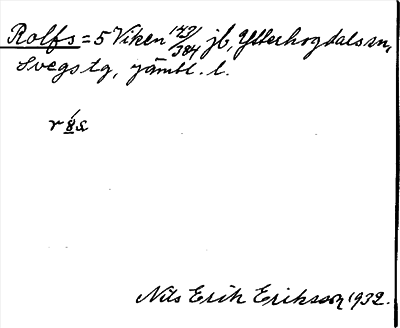 Rolfs = 5 Viken 143/384 jb, Ytterhogdals sn,
Svegs tg, Jämtl. l.
Nils Erik Eriksson 1932.